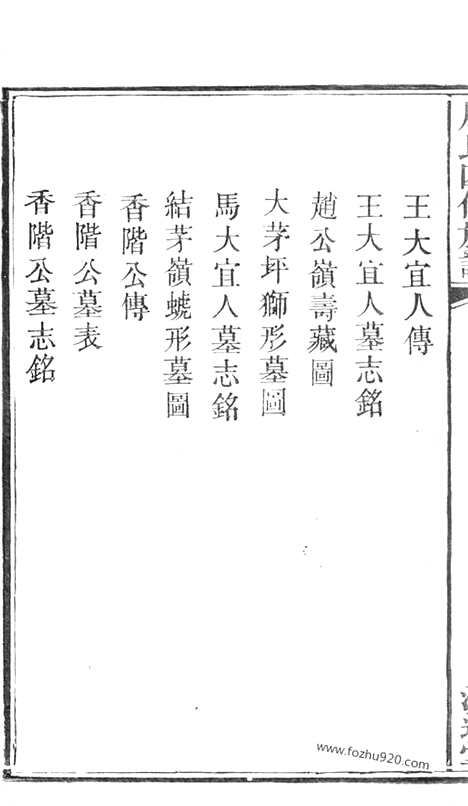 王大宜人傳
王大宜人墓志銘
趙公嶺壽藏圖
大茅坪獅形墓圖
馬大宜人墓志銘
結茅嶺虩形墓圖
香階公傳
香階公墓表
香階公墓志銘
www.fozhu920.com